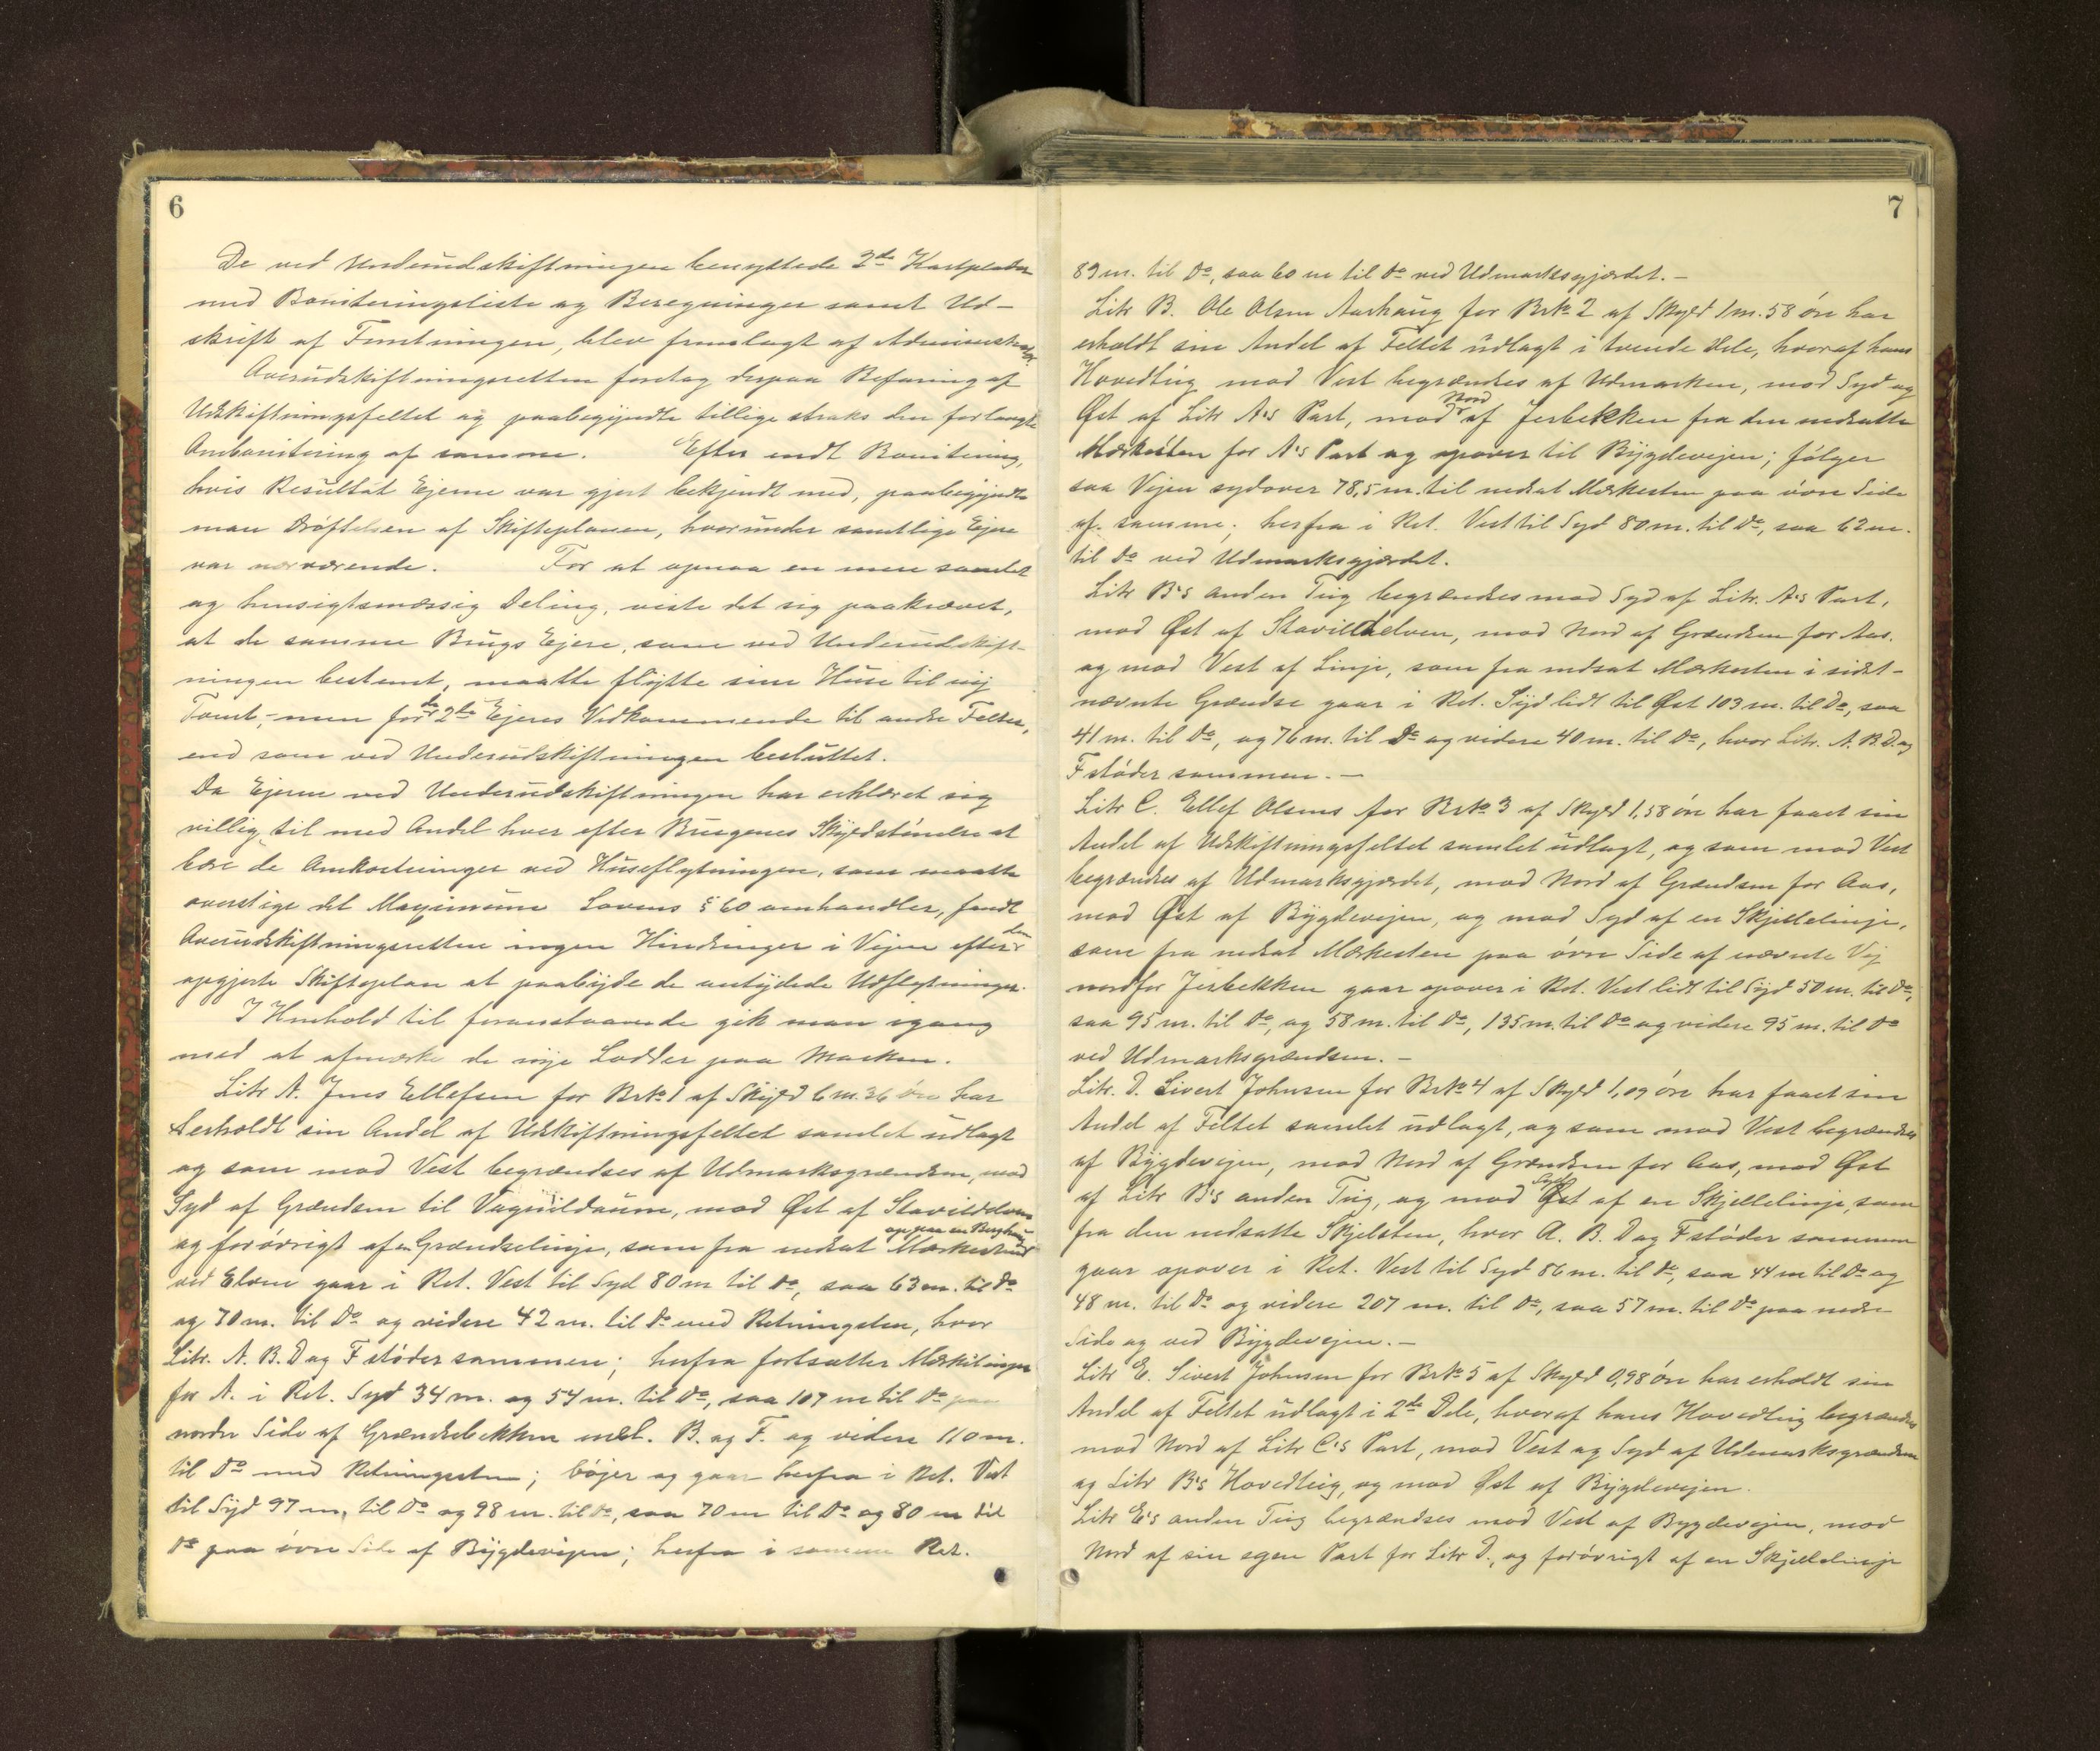 6
De ved Underudskiftningen benyttede 2de Kartplader
med Boniteringsliste og Beregninger samt Ud-
skrift af Forretningen, blev fremlagt af Administrator.
Overudskiftningsretten foretog derpaa Befaring af
Udskiftningsfeltet og paabegyndte tillige straks den forlangte
Ombonitering af samme. Efter endt Bonitering,
hvis Resultat Ejerne var gjort bekjendt med, paabegyndte
man Drøftelsen af Skifteplanen, hvorunder samtlige Ejere
var nærværende. For at opnaa en mere samlet
og hensigtsmæssig Deling, viste det sig paakrævet,
at de samme Brugs Ejere, som ved Underudskift-
ningen bestemt, maatte flytte sine Huse til ny
Tomt, men for de 2de Ejeres Vedkommende til andre Felter,
end som ved Underudskiftningen besluttet.
Da Ejerne ved Underudskiftningen har erklæret sig
villig til med Andel hver efter Brugenes Skyldstørrelse at
bære de Omkostninger ved Husflytningen, som maatte
overstige det Maximum Lovens § 60 omhandler, fandt
Overudskiftningsretten ingen Hindringer i Vejen efter den
opgjorte Skifteplan at paabyde de antydede Udflytninger.
I Henhold til foranstaaende gik man igang
med at afmærke de nye Lodder paa Marken.
Litr A. Jens Ellefsen for Brk No 1 af Skyld 6 m. 36 øre har
erholdt sin Andel af Udskiftningsfeltet samlet udlagt
og som mod Vest begrændses af Udmarksgrændsen, mod
Syd af Grændsen til Vagnildaune, mod Øst af Stavildelven
og forøvrigt af en Grændselinje, som fra nedsat Mærkesten op paa en Berghaug
ved Elven gaar i Ret. Vest til Syd 80 m til Do, saa 63 m. til Do
og 70 m. til Do og videre 42 m. til Do med Retningsten, hvor
Litr. A. B. D og F støder sammen; herfra fortsætter Mærkelinjen
for A. i Ret. Syd 34 m. og 54 m. til Do, saa 107 m til Do paa
nordre Side af Grændsebekken mel. B. og F. og videre 110 m.
til Do med Retningssten; bøjer og gaar herfra i Ret. Vest
til Syd 97 m. til Do og 98 m. til Do, saa 70 m til Do og 80 m til
Do paa øvre Side af Bygdevejen; herfra i samme Ret.
7
89 m. til Do, saa 60 m til Do ved Udmarksgjærdet. –
Litr B. Ole Olsen Aarhaug for Brk No 2 af Skyld 1 m. 58 øre har
erholdt sin Andel af Feltet udlagt i tvende Dele, hvoraf hans
Hovedteig mod Vest begrændses af Udmarken, mod Syd og
Øst af Litr A's Part, mod Nord af Jerbekken fra den nedsatte
Mærkesten for A's Part og opover til Bygdevejen; følger
saa Vejen sydover 78,5 m. til nedsat Mærkesten paa øvre Side
af samme, herfra i Ret. Vest til Syd 80 m. til Do, saa 62 m.
til Do ved Udmarksgjærdet.
Litr B's anden Teig begrændses mod Syd af Litr. A's Part,
mod Øst af Stavildelven, mod Nord af Grændsen for Aas.
og mod Vest af Linje, som fra nedsat Mærkesten i sidst-
nævnte Grændse gaar i Ret. Syd lidt til Øst 103 m. til Do, saa
41 m. til Do, og 76 m. til Do og videre 40 m. til Do, hvor Litr. A. B. D. og
F støder sammen. –
Litr C. Ellef Olsens for Brk No 3 af Skyld 1,58 øre har faaet sin
Andel af Udskiftningsfeltet samlet udlagt, og som mod Vest
begrændses af Udmarksgjærdet, mod Nord af Grændsen for Aas,
mod Øst af Bygdevejen, og mod Syd af en Skjellelinje,
som fra nedsat Mærkesten paa øvre Side af nævnte Vej
nordfor Jerbekken gaar opover i Ret. Vest lidt til Syd 50 m. til Do,
saa 95 m. til Do, og 58 m. til Do, 135 m. til Do og videre 95 m. til Do
ved Udmarksgrændsen. –
Litr. D. Sivert Johnsen for Brk No 4 af Skyld 1,09 øre har faaet sin
Andel af Feltet samlet udlagt, og som mod Vest begrændses
af Bygdevejen, mod Nord af Grændsen for Aas, mod Øst
af Litr B's anden Teig, og mod Syd Øst af en Skjellelinje, som
fra den nedsatte Skjelsten, hvor A. B. D og F støder sammen
gaar opover i Ret. Vest til Syd 86 m. til Do, saa 44 m til Do og
48 m. til Do og videre 207 m. til Do, saa 57 m. til Do paa nedre
Side og ved Bygdevejen. –
Litr E. Sivert Johnsen for Brk No 5 af Skyld 0,98 øre har erholdt sin
Andel af Feltet udlagt i 2de Dele, hvoraf hans Hovedteig begrændses
mod Nord af Litr C's Part, mod Vest og Syd af Udmarksgrændsen
og Litr B's Hovedteig, og mod Øst af Bygdevejen.
Litr E's anden Teig begrændses mod Vest af Bygdevejen, mod
Nord af sin egen Part for Litr D., og forøvrigt af en Skjellelinje